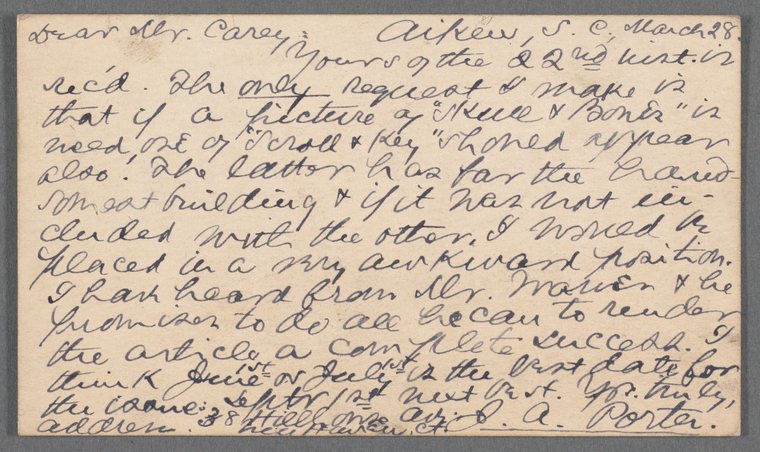 Dear Mr. Carey: Aiken, S. C., March 28.
Yours of the 22nd inst. is
rec'd. The only request I make is
that if a picture of "Skull & Bones" is
used, one of "Scroll & Key" should appear
also! The latter has far the hand-
somest building & if it was not in-
cluded with the other, I would be
placed in a very awkward position.
I have heard from Mr. Warner & he
promises to do all he can to render
the article a complete success. I
think June 1st or July 1st is the best date for
the issue: Septbr 1st next best. Yrs. truly,
address. 38 Hillhouse av. J. A. Porter.
New Haven, Ct.